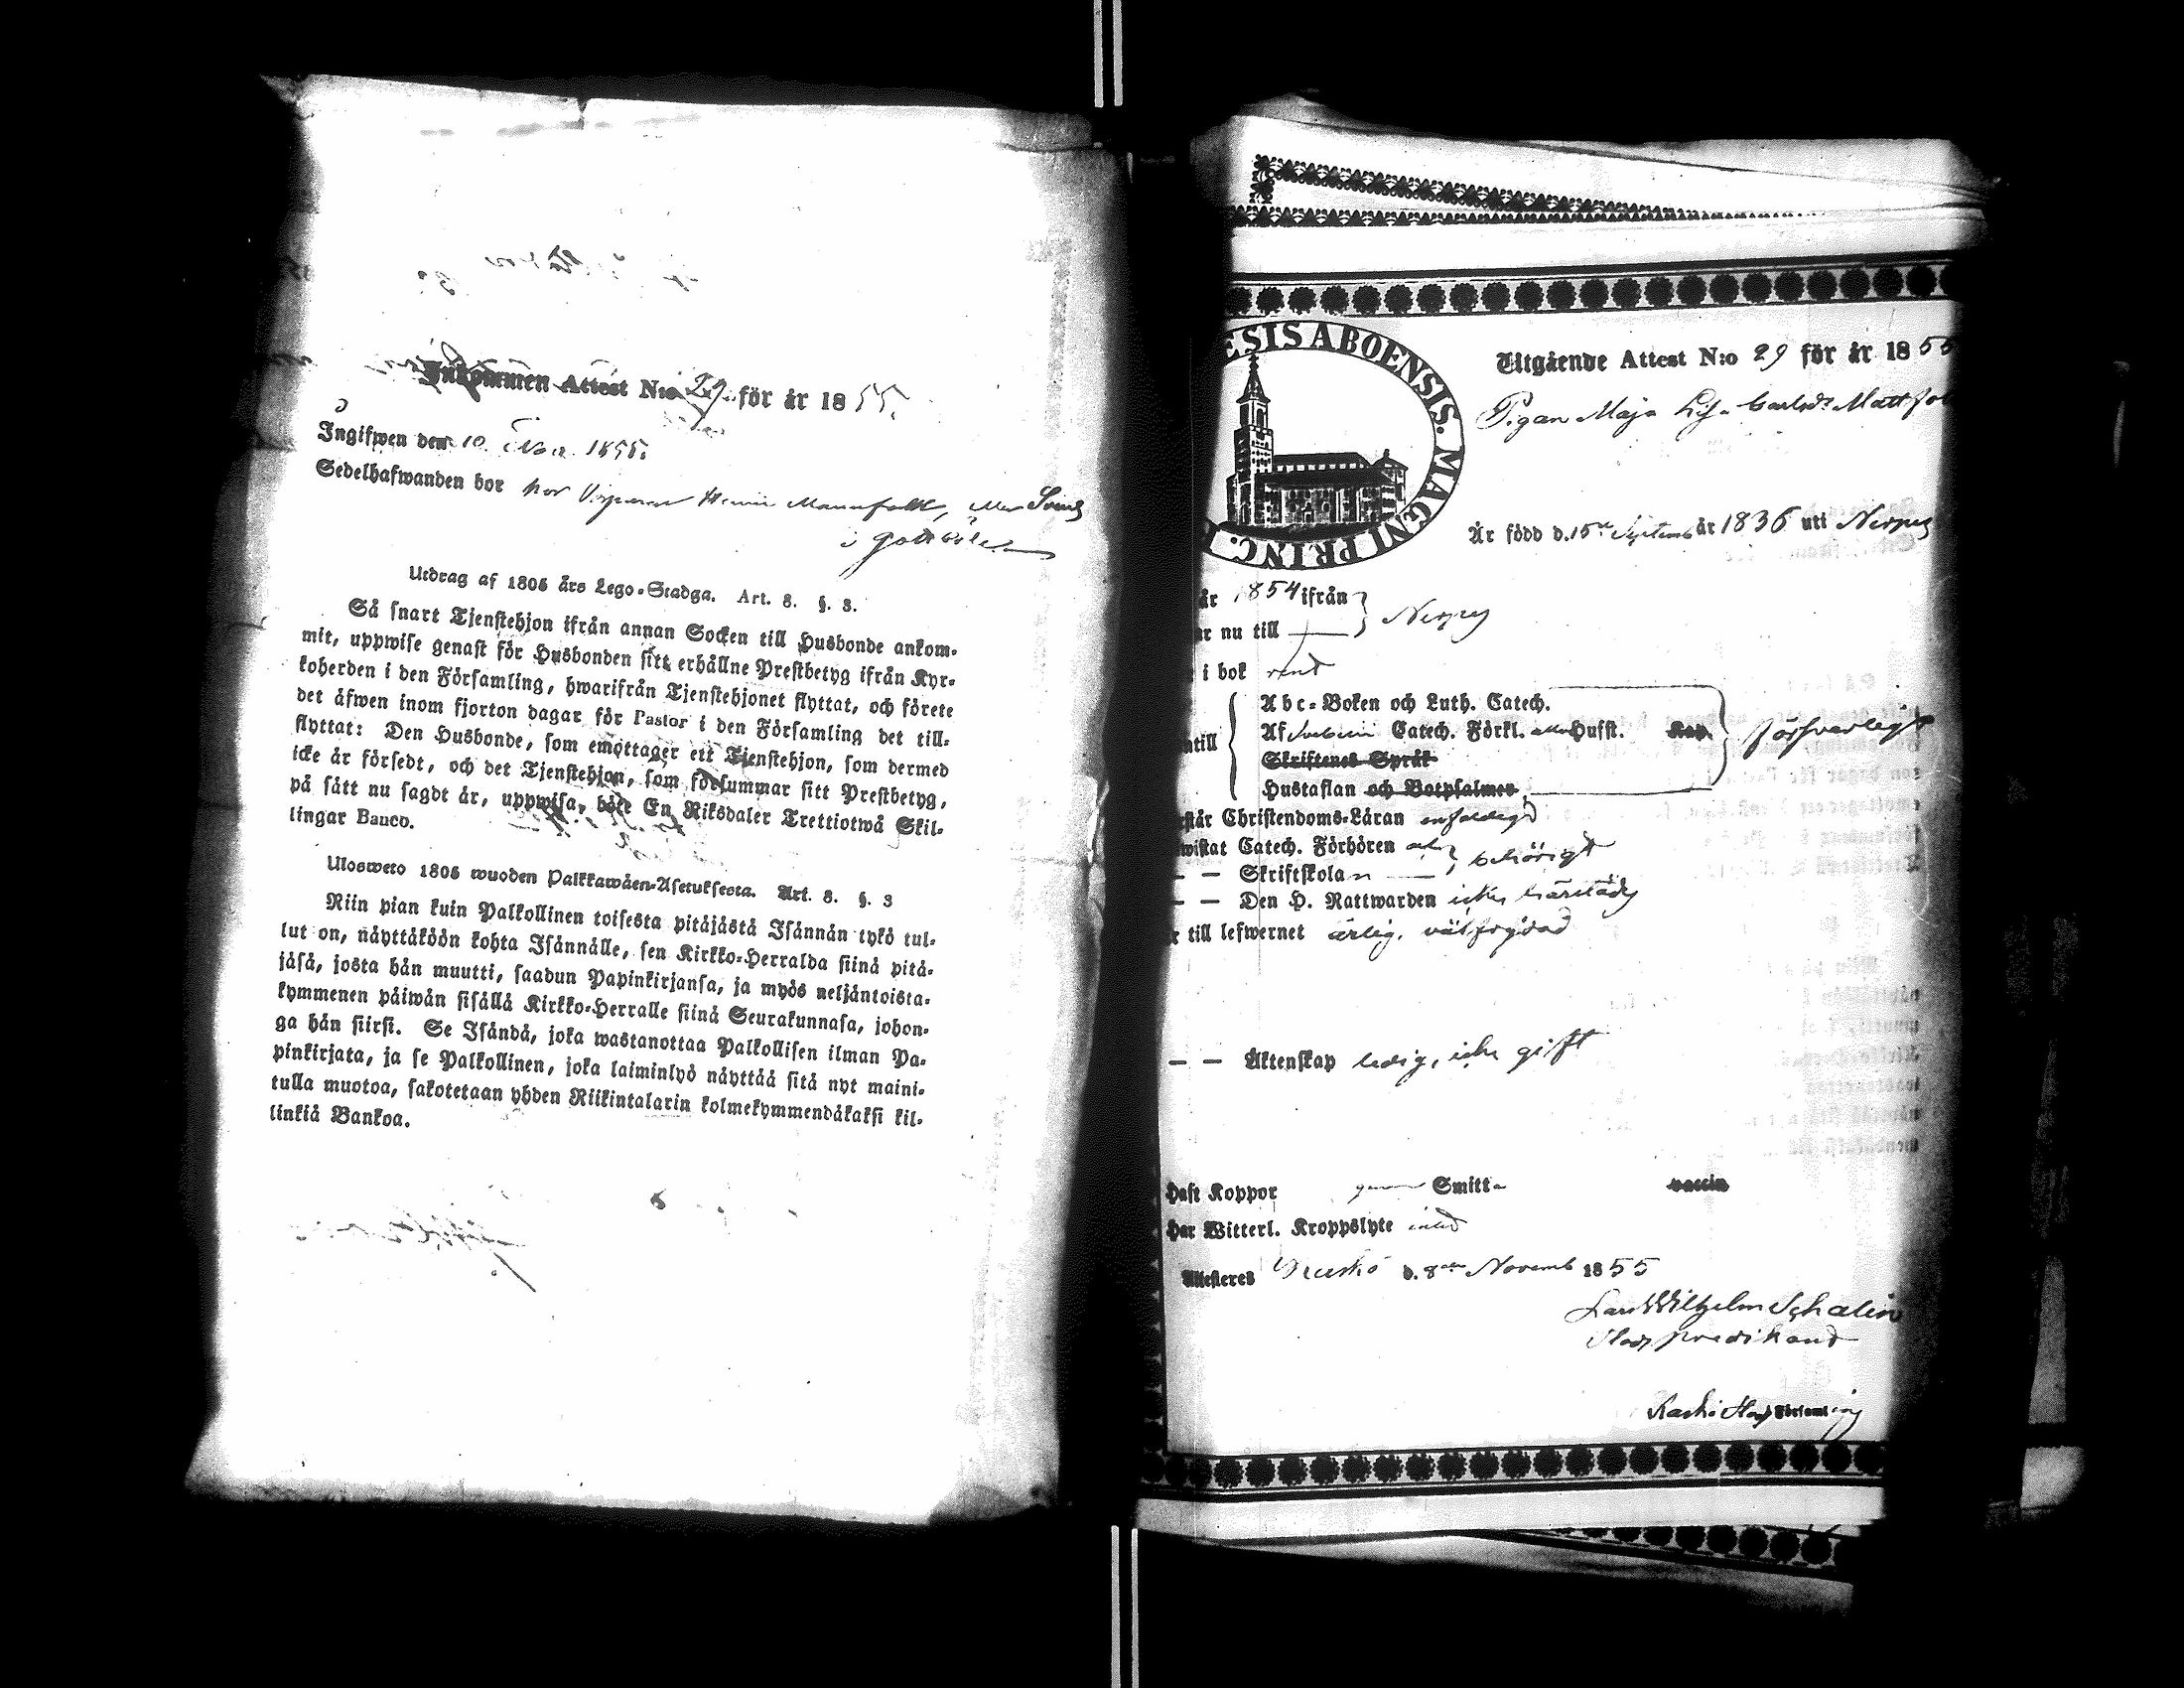 Inkommen Attest N:o 29. för år 1855.
Ingifwen den 10. Nov. 1855.
Sedelhafwanden bor hos
i
Utdrag af 1805 års Lego-Stadga. Art. 8. §. 3.
Så snart Tjenstehjon ifrån annan Socken till Husbonde ankom-
mit, uppwise genast för Husbonden sitt erhållne Prestbetyg ifrån Kyr-
koherden i den Församling, hwarifrån Tjenstehjonet flyttat, och förete
det äfwen inom fjorton dagar för Pastor i den Församling det till-
flyttat: Den Husbonde, som emottager ett Tjenstehjon, som dermed
icke är försedt, och det Tjenstehjon, som försummar sitt Prestbetyg,
på sätt nu sagdt är, uppwisa, böte En Riksdaler Trettiotwå Skil-
lingar Banco.
Ulosweto 1805 wuoden Palkkawäen-Asetuksesta. Art. 8. §. 3
Niin pian kuin Palkollinen toisesta pitäjästä Isännän tykö tul-
lut on, näyttäköön kohta Isännälle, sen Kirkko-Herralda siinä pitä-
jäsä, josta hän muutti, saadun Papinkirjansa, ja myös neljäntoista-
kymmenen päiwän sisällä Kirkko-Herralle siinä Seurakunnasa, johon-
ga hän siirsi. Se Isändä, joka wastanottaa Palkollisen ilman Pa-
pinkirjata, ja se Palkollinen, joka laiminlyö näyttää sitä nyt maini-
tulla muotoa, sakotetaan yhden Riikintalarin kolmekymmendäkaksi kil-
linkiä Bankoa.
ESIS ABOENSIS. MAGNI PRINC.
Utgående Attest N:o 29 för år 1855
Pigan Maja Lisa Carlsdr Mattfol
Är född d. 15de Septemb år 1836 uti Nerpes
år 1854 ifrån
ar nu till } Nerpes
i bok rent
Abc-Boken och Luth. Catech.
Af Svebelii Catech. Förkl. Husst. Kap.
ntill försvarligt
Skriftenes Språk
Hustaflan och Botpsalmer
står Christendoms-Läran enfaldigt
wistat Catech. Förhören och
— — Skriftskolan } behörigt
— — Den H. Nattwarden icke härstädes
r till lefwernet ärlig, välfrejdad
— — Äktenskap ledig, icke gift
Haft Koppor genom Smitta vaccin
Har Witterl. Kroppslyte intet
Attesteres d. 8de Novemb 1855
Lars Wilhelm Schalin
predikant
Kaskö Stads Församling